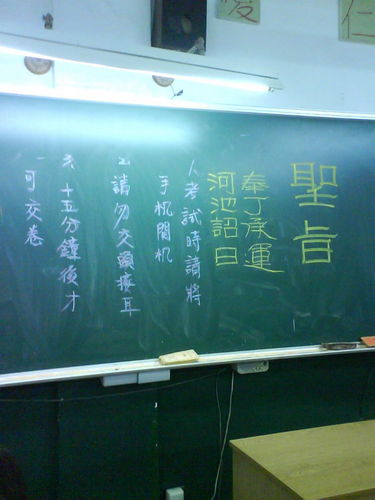 聖旨
奉丁承運
河池詔曰
1.考試時請將
手机関机
2.請勿交頭接耳
3.十五分鐘後才
可交卷
仁